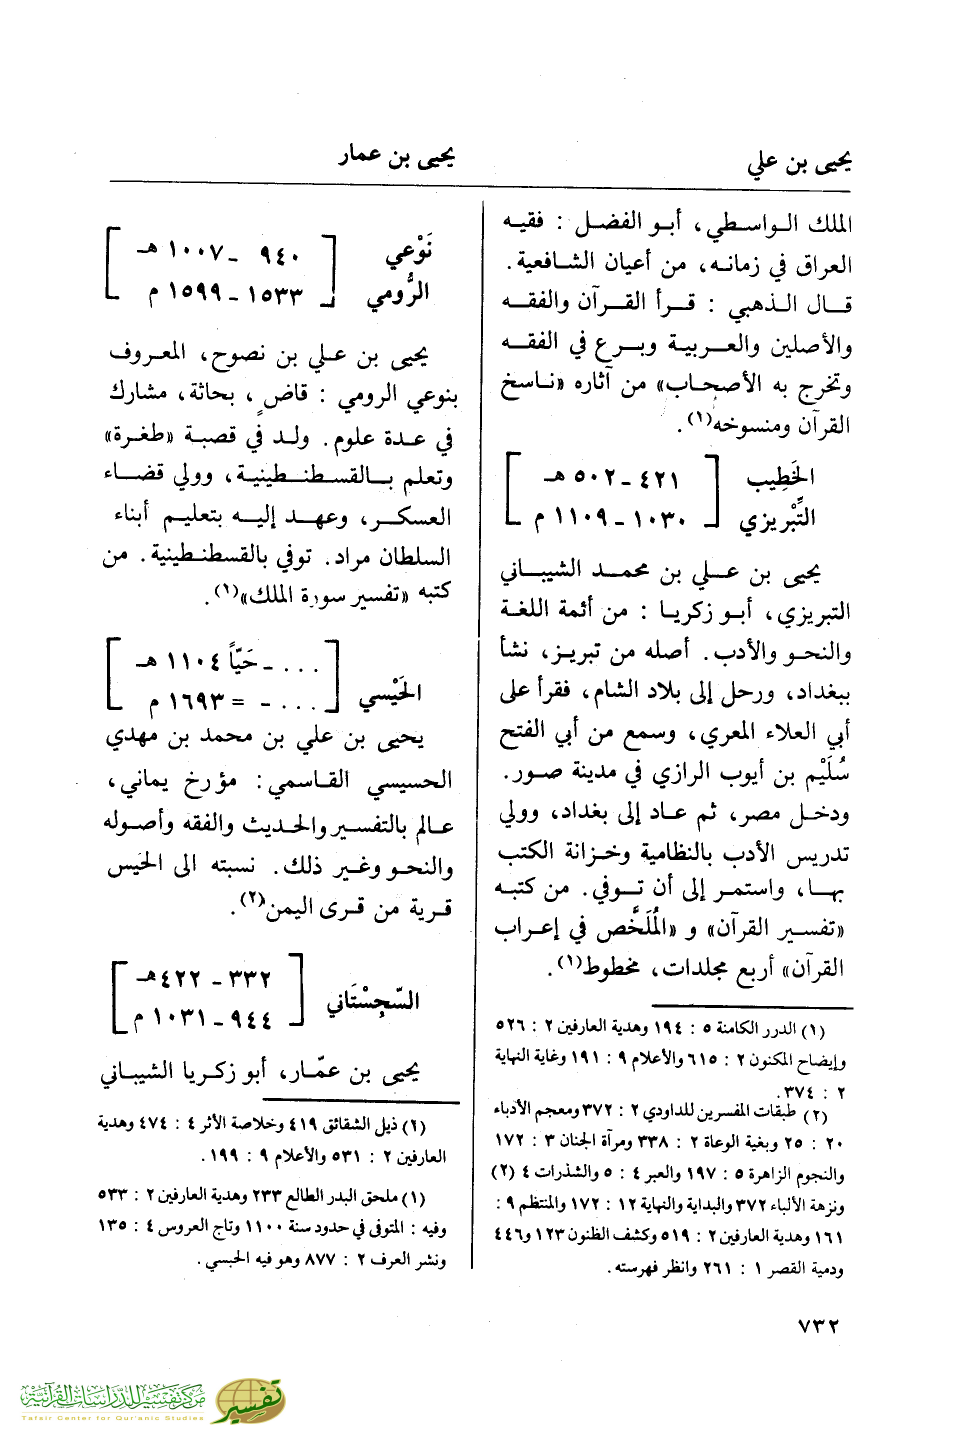 يحيى بن علي
يحيى بن عمار
الملك الواسطي، أبو الفضل : فقيه
العراق في زمانه، من أعيان الشافعية.
قال الذهبي : قرأ القرآن والفقه
والأصلين والعربية وبرع في الفقه
وتخرج به الأصحاب» من آثاره «ناسخ
القرآن ومنسوخه(١).
الخَطِيب [ ٤٢١ ـ ٥٠٢ هـ ]
التِّبْريزي [ ١٠٣٠ ـ ١١٠٩ م ]
يحيى بن علي بن محمد الشيباني
التبريزي، أبو زكريا : من أئمة اللغة
والنحو والأدب. أصله من تبريز، نشأ
ببغداد، ورحل إلى بلاد الشام، فقرأ على
أبي العلاء المعري، وسمع من أبي الفتح
سُلَيْم بن أيوب الرازي في مدينة صور.
ودخل مصر، ثم عاد إلى بغداد، وولي
تدريس الأدب بالنظامية وخزانة الكتب
بها، واستمر إلى أن توفي. من كتبه
«تفسير القرآن» و «المُلَخَّص في إعراب
القرآن» أربع مجلدات، مخطوط(١).
(١) الدرر الكامنة ٥ : ١٩٤ وهدية العارفين ٢ : ٥٢٦
وإيضاح المكنون ٢ : ٦١٥ والأعلام ٩ : ١٩١ وغاية النهاية
٢ : ٣٧٤.
(٢) طبقات المفسرين للداودي ٢ : ٣٧٢ ومعجم الأدباء
٢٠ : ٢٥ وبغية الوعاة ٢ : ٣٣٨ ومرآة الجنان ٣ : ١٧٢
والنجوم الزاهرة ٥ : ١٩٧ والعبر ٤ : ٥ والشذرات ٤ (٢)
ونزهة الألباء ٣٧٢ والبداية والنهاية ١٢ : ١٧٢ والمنتظم ٩ :
١٦١ وهدية العارفين ٢ : ٥١٩ وكشف الظنون ١٢٣ و٤٤٦
ودمية القصر ١ : ٢٦١ وانظر فهرسته.
نَوْعي [ ٩٤٠ ـ ١٠٠٧ هـ ]
الرُّومي [ ١٥٣٣ ـ ١٥٩٩ م ]
يحيى بن علي بن نصوح، المعروف
بنوعي الرومي : قاضٍ، بحاثة، مشارك
في عدة علوم. ولد في قصبة «طغرة»
وتعلم بالقسطنطينية، وولي قضاء
العسكر، وعهد إليه بتعليم أبناء
السلطان مراد. توفي بالقسطنطينية. من
كتبه «تفسير سورة الملك»(١).
الحَيْسي [ ... ـ حَيّاً ١١٠٤ هـ ]
[ ... ـ = ١٦٩٣ م ]
يحيى بن علي بن محمد بن مهدي
الحسيسي القاسمي: مؤرخ يماني،
عالم بالتفسير والحديث والفقه وأصوله
والنحو وغير ذلك. نسبته الى الحَيس
قرية من قرى اليمن(٢).
السِّجِسْتَاني [ ٣٣٢ ـ ٤٢٢هـ ]
[ ٩٤٤ ـ ١٠٣١ م ]
يحيى بن عمّار، أبو زكريا الشيباني
(١) ذيل الشقائق ٤١٩ وخلاصة الأثر ٤ : ٤٧٤ وهدية
العارفين ٢ : ٥٣١ والأعلام ٩ : ١٩٩.
(١) ملحق البدر الطالع ٢٣٣ وهدية العارفين ٢ : ٥٣٣
وفيه : المتوفى في حدود سنة ١١٠٠ وتاج العروس ٤ : ١٣٥
ونشر العرف ٢ : ٨٧٧ وهو فيه الحبسي.
٧٣٢
مركز تفسير للدراسات القرآنية
Tafsir Center for Qur'anic Studies
تفسير